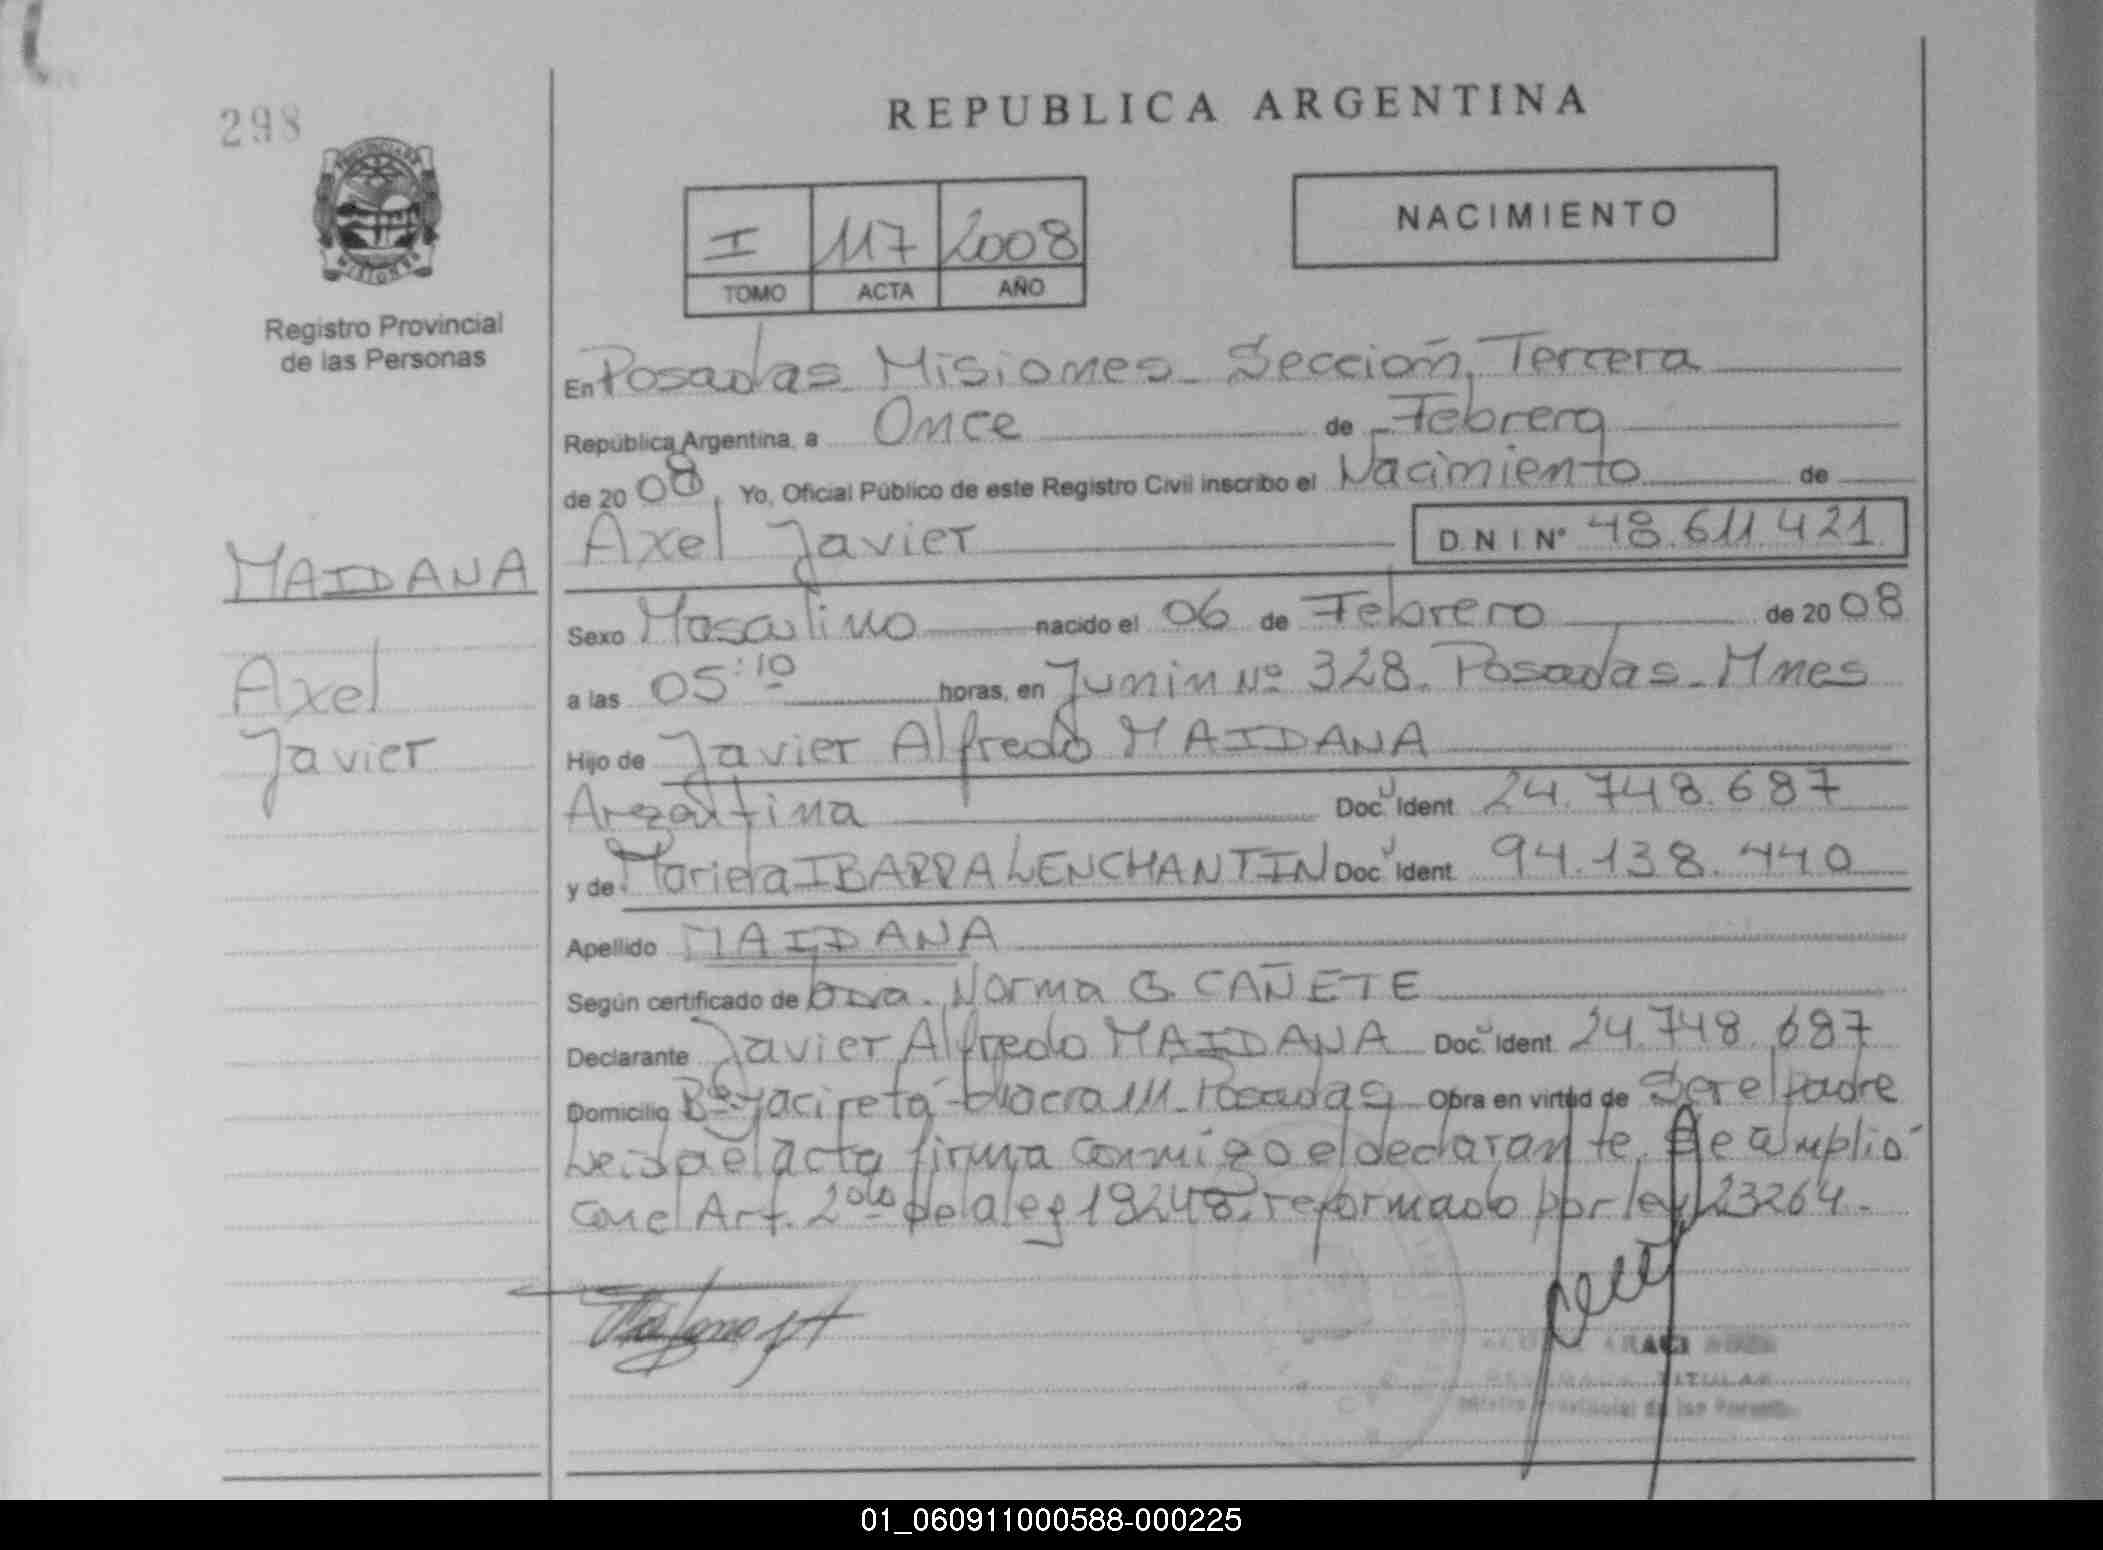 298
REPUBLICA ARGENTINA
PROVINCIA DE
MISIONES
Registro Provincial
de las Personas
I 117 2008
TOMO ACTA AÑO
NACIMIENTO
En Posadas Misiones - Sección, Tercera
República Argentina, a Once de Febrero
de 2008, Yo, Oficial Público de este Registro Civil inscribo el Nacimiento de
Axel Javier D N I Nº 48.611.421
MAIDANA
Axel
Javier
Sexo Masculino nacido el 06 de Febrero de 2008
a las 05:10 horas, en Junin Nº 328. Posadas - Mnes
Hijo de Javier Alfredo MAIDANA
Argentina Doc. Ident. 24.748.687
y de Mariela IBARRA LENCHANTIN Doc. Ident. 94.138.440
Apellido MAIDANA
Según certificado de Norma G. CAÑETE
Declarante Javier Alfredo MAIDANA Doc. Ident. 24.748.687
Domicilio Bº Yacireta - Posadas Obra en virtud de Ser el padre
Leida el acta firma conmigo el declarante. Se amplió
con el Art. 2do de la ley 18248, reformado por ley 23264.
TITULAR
Provincial de las Personas
01_060911000588-000225